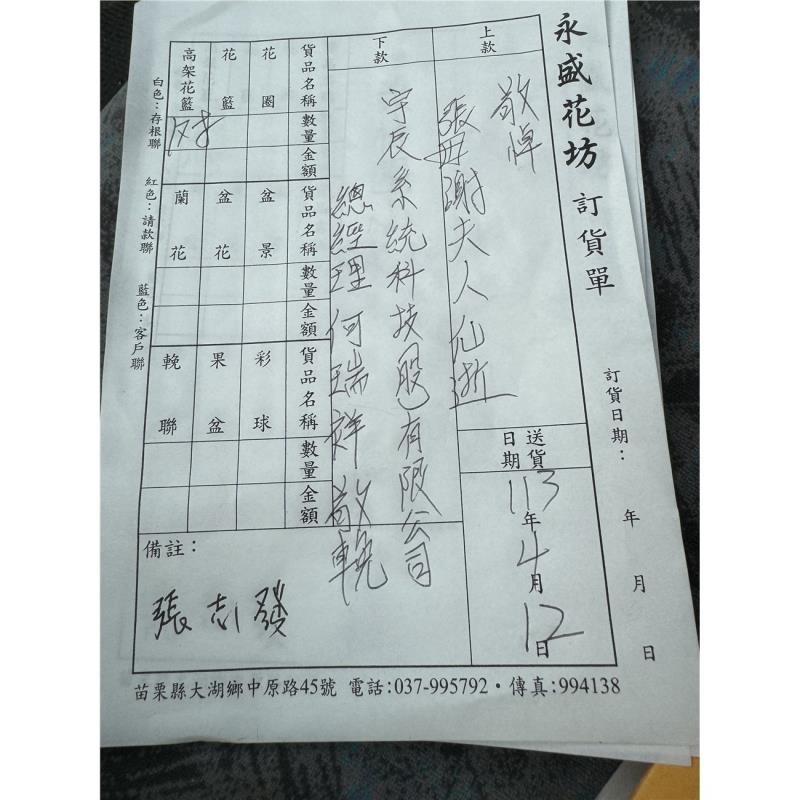 永盛花坊 訂貨單
訂貨日期： 年 月 日
上款
敬悼
張母謝夫人仙逝
送貨日期
113年4月12日
下款
宇辰系統科技股份有限公司
總經理 何瑞祥 敬輓
貨品名稱 數量 金額 貨品名稱 數量 金額 貨品名稱 數量 金額
花圈 盆景 彩球
花籃 盆花 果盆
高架花籃 蘭花 輓聯
備註：
張志發
白色：存根聯 紅色：請款聯 藍色：客戶聯
苗栗縣大湖鄉中原路45號 電話:037-995792・傳真:994138